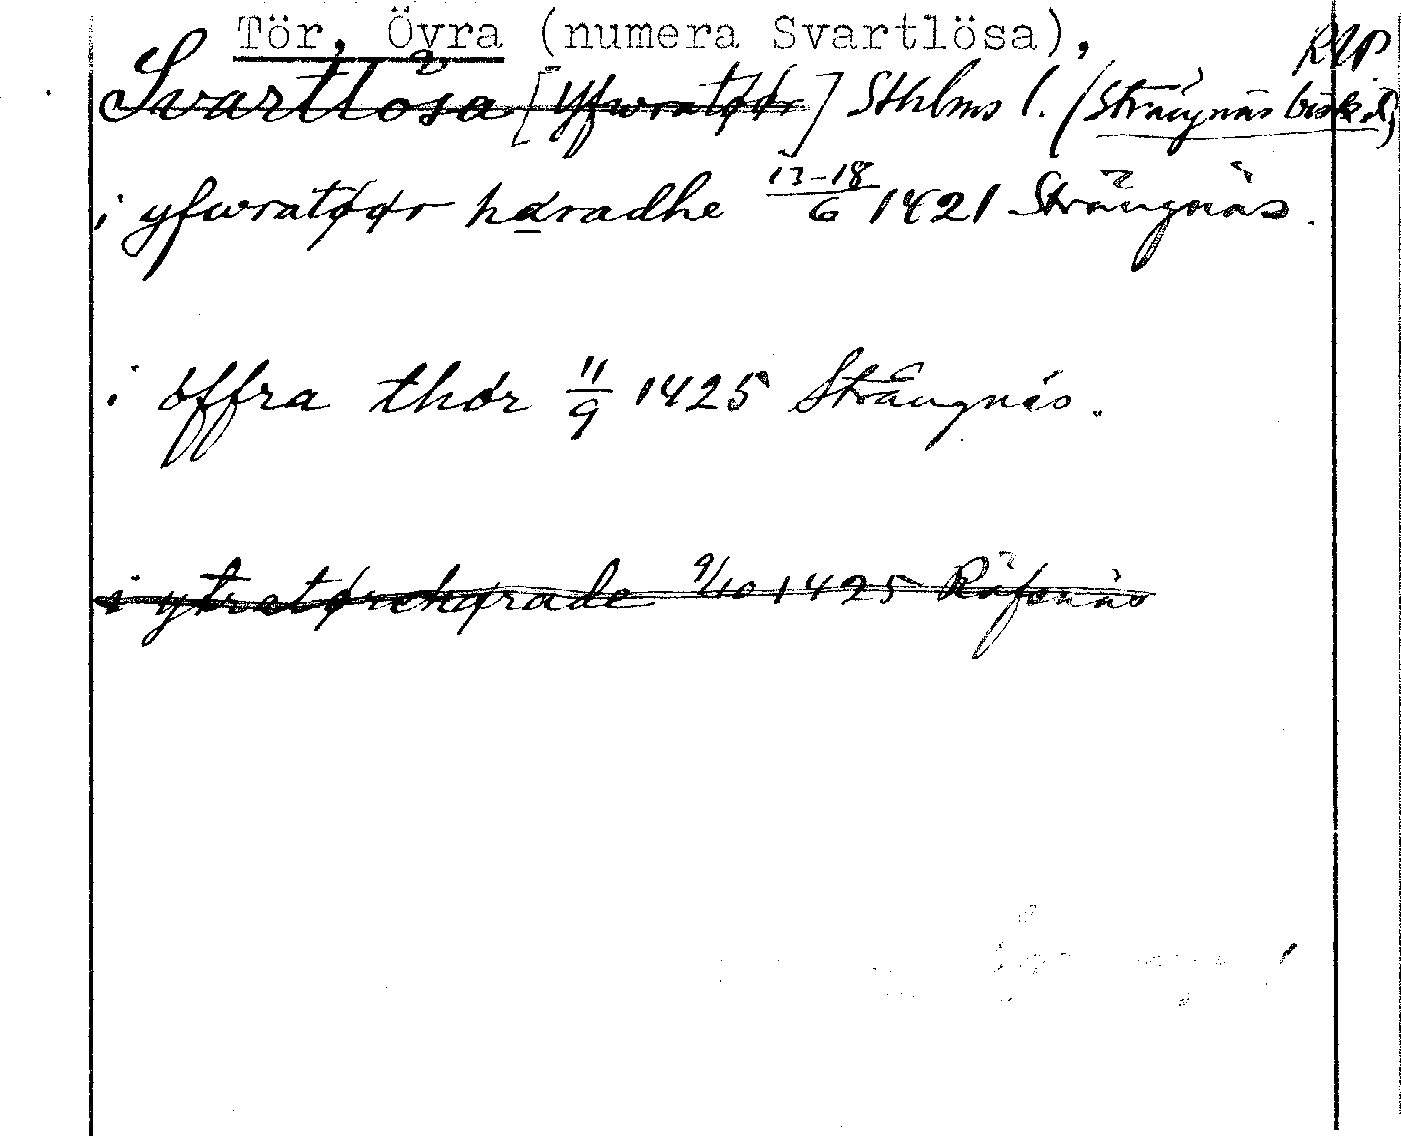 Tör, Övra (numera Svartlösa),
RAP
Svartlösa [Yfwratøør] Sthlms l. (Strängnäs bisk.d)
i yfwratøør haradhe 13-18/6 1421 Strängnäs.
i öffra thör 11/9 1425 Strängnäs.
i ytretørehørade 9/10 1425 Räfsnäs